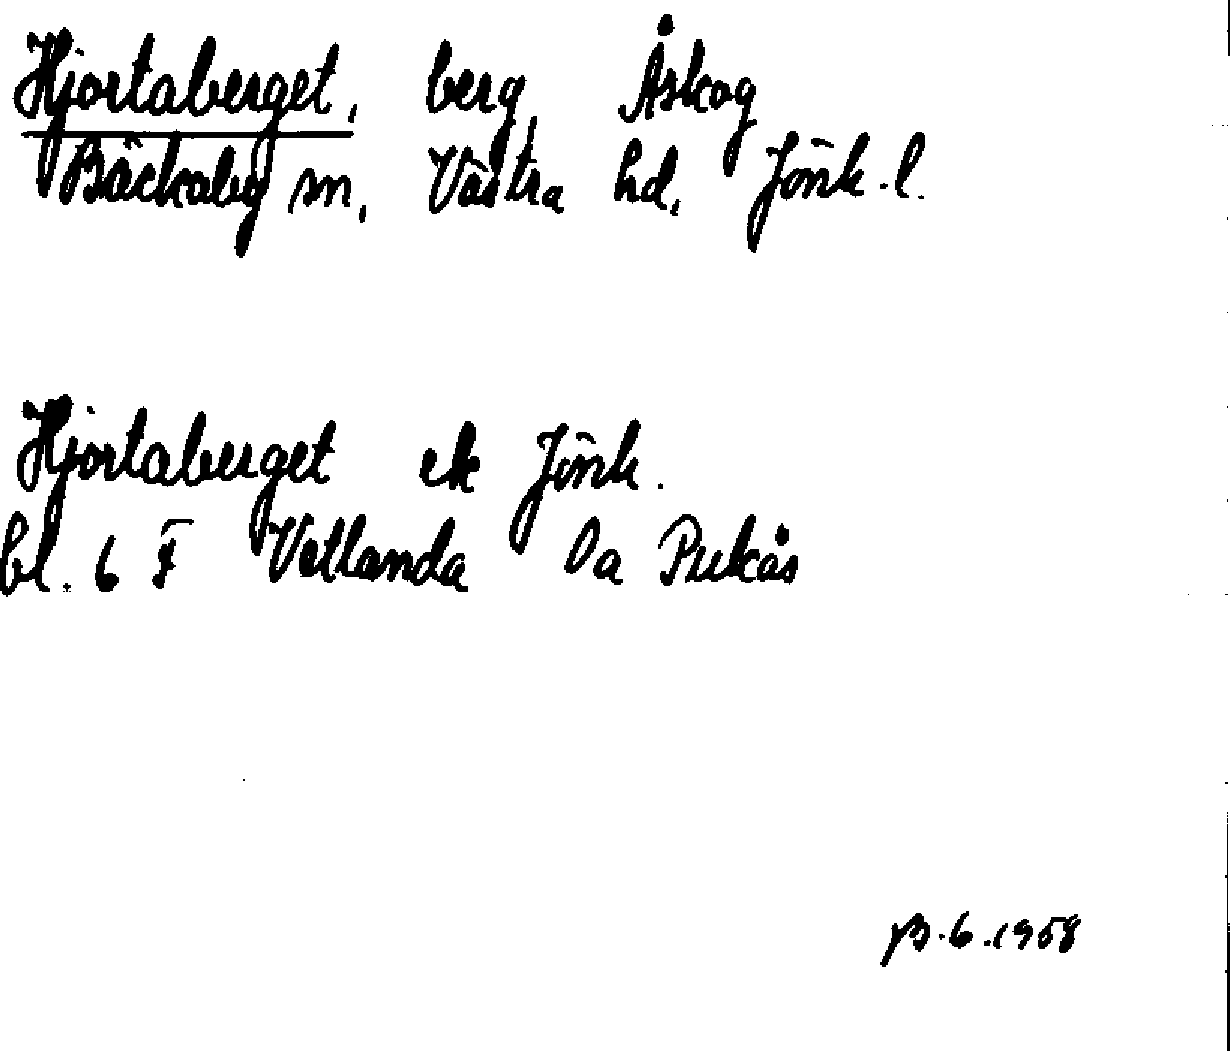 Hjortaberget, berg Åskog
Bäckaby sn, Västra hd, Jönk. l.
Hjortaberget ek Jönk.
bl. 6 F Vetlanda Oa Pukås
6.1958